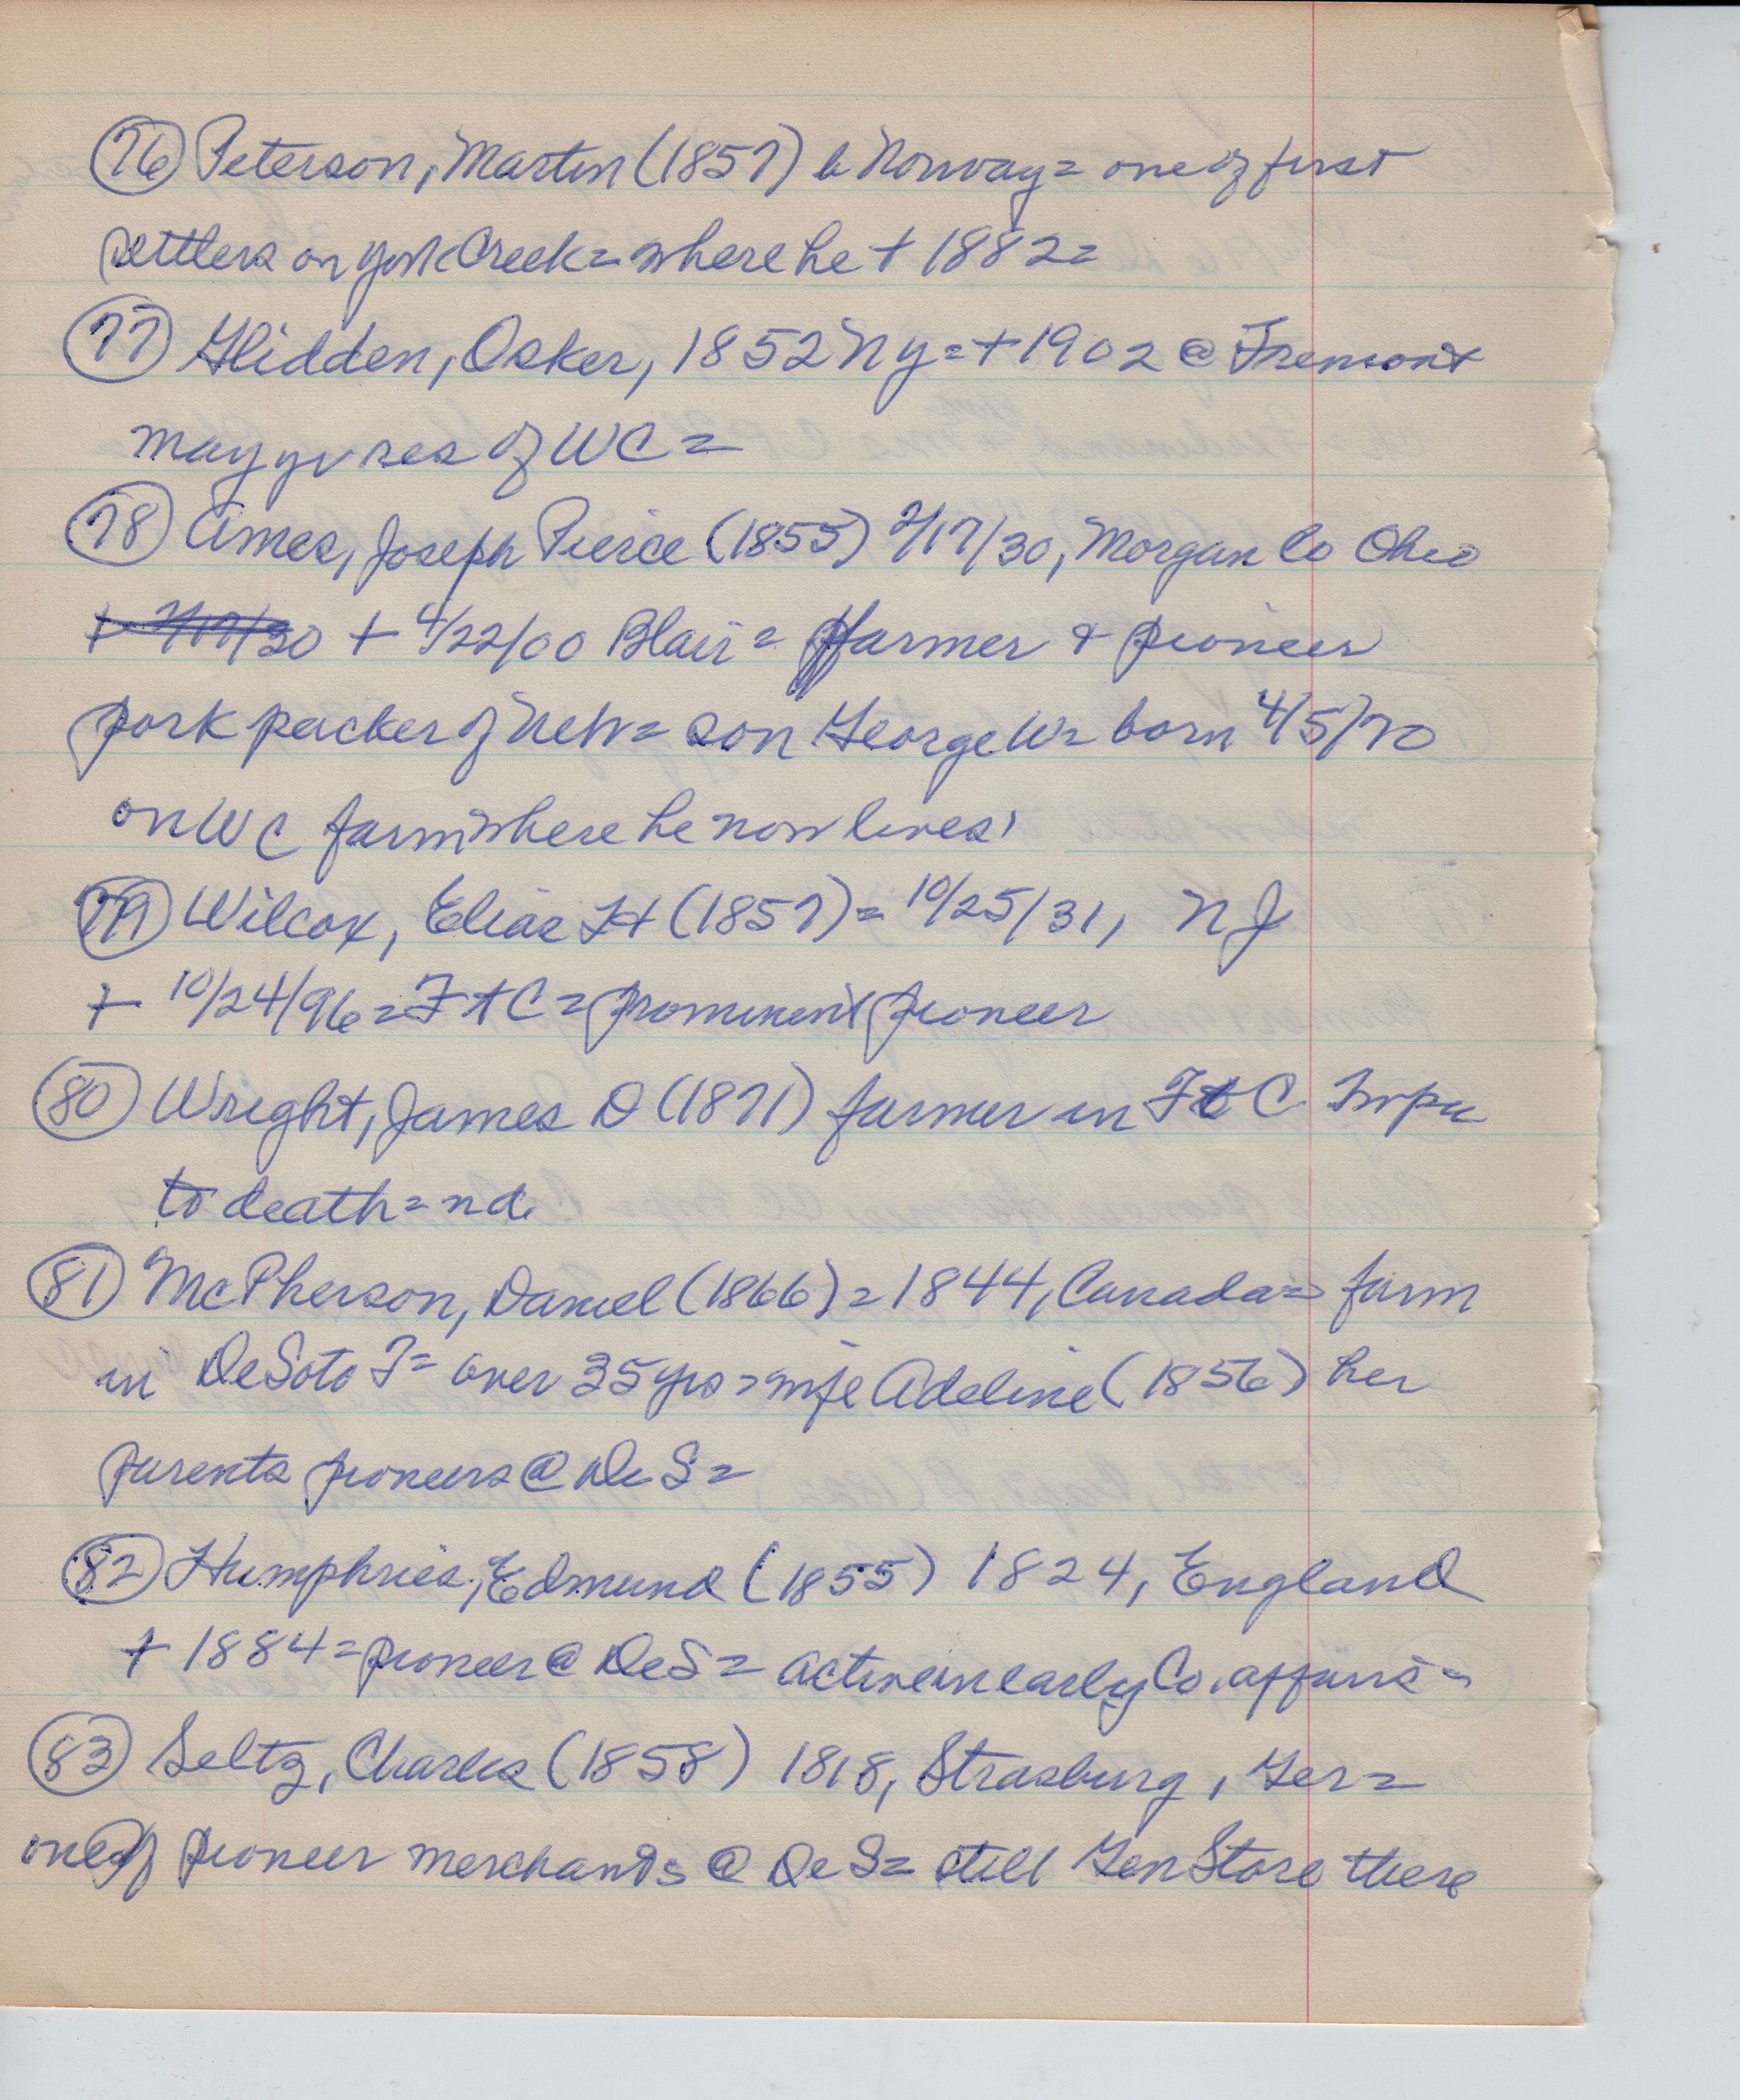 76 Peterson, Martin (1857) b Norway = one of first
settlers on York Creek = where he + 1882 =
77 Glidden, Osker, 1852 NY = + 1902 @ Fremont
may yr res of WC =
78 Ames, Joseph Pierce (1855) 2/17/30, Morgan Co Ohio
+ 2/17/30 + 4/22/00 Blair = farmer & pioneer
pork packer of Neb = son George W = born 4/5/70
on WC farm where he now lives,
79 Wilcox, Elias H (1857) = 10/25/31, NJ
+ 10/24/96 = Ft C = prominent pioneer
80 Wright, James D (1871) farmer in Ft C Twps
to death = nd.
81 McPherson, Daniel (1866) = 1844, Canada = farm
in DeSoto T = over 35 yrs = wife Adeline (1856) her
parents pioneers @ De S =
82 Humphries, Edmund (1855) 1824, England
+ 1884 = pioneer @ DeS = active in early Co. affairs =
83 Seltz, Charles (1858) 1818, Strasburg, Ger =
one of pioneer merchants @ De S = still Gen Store there